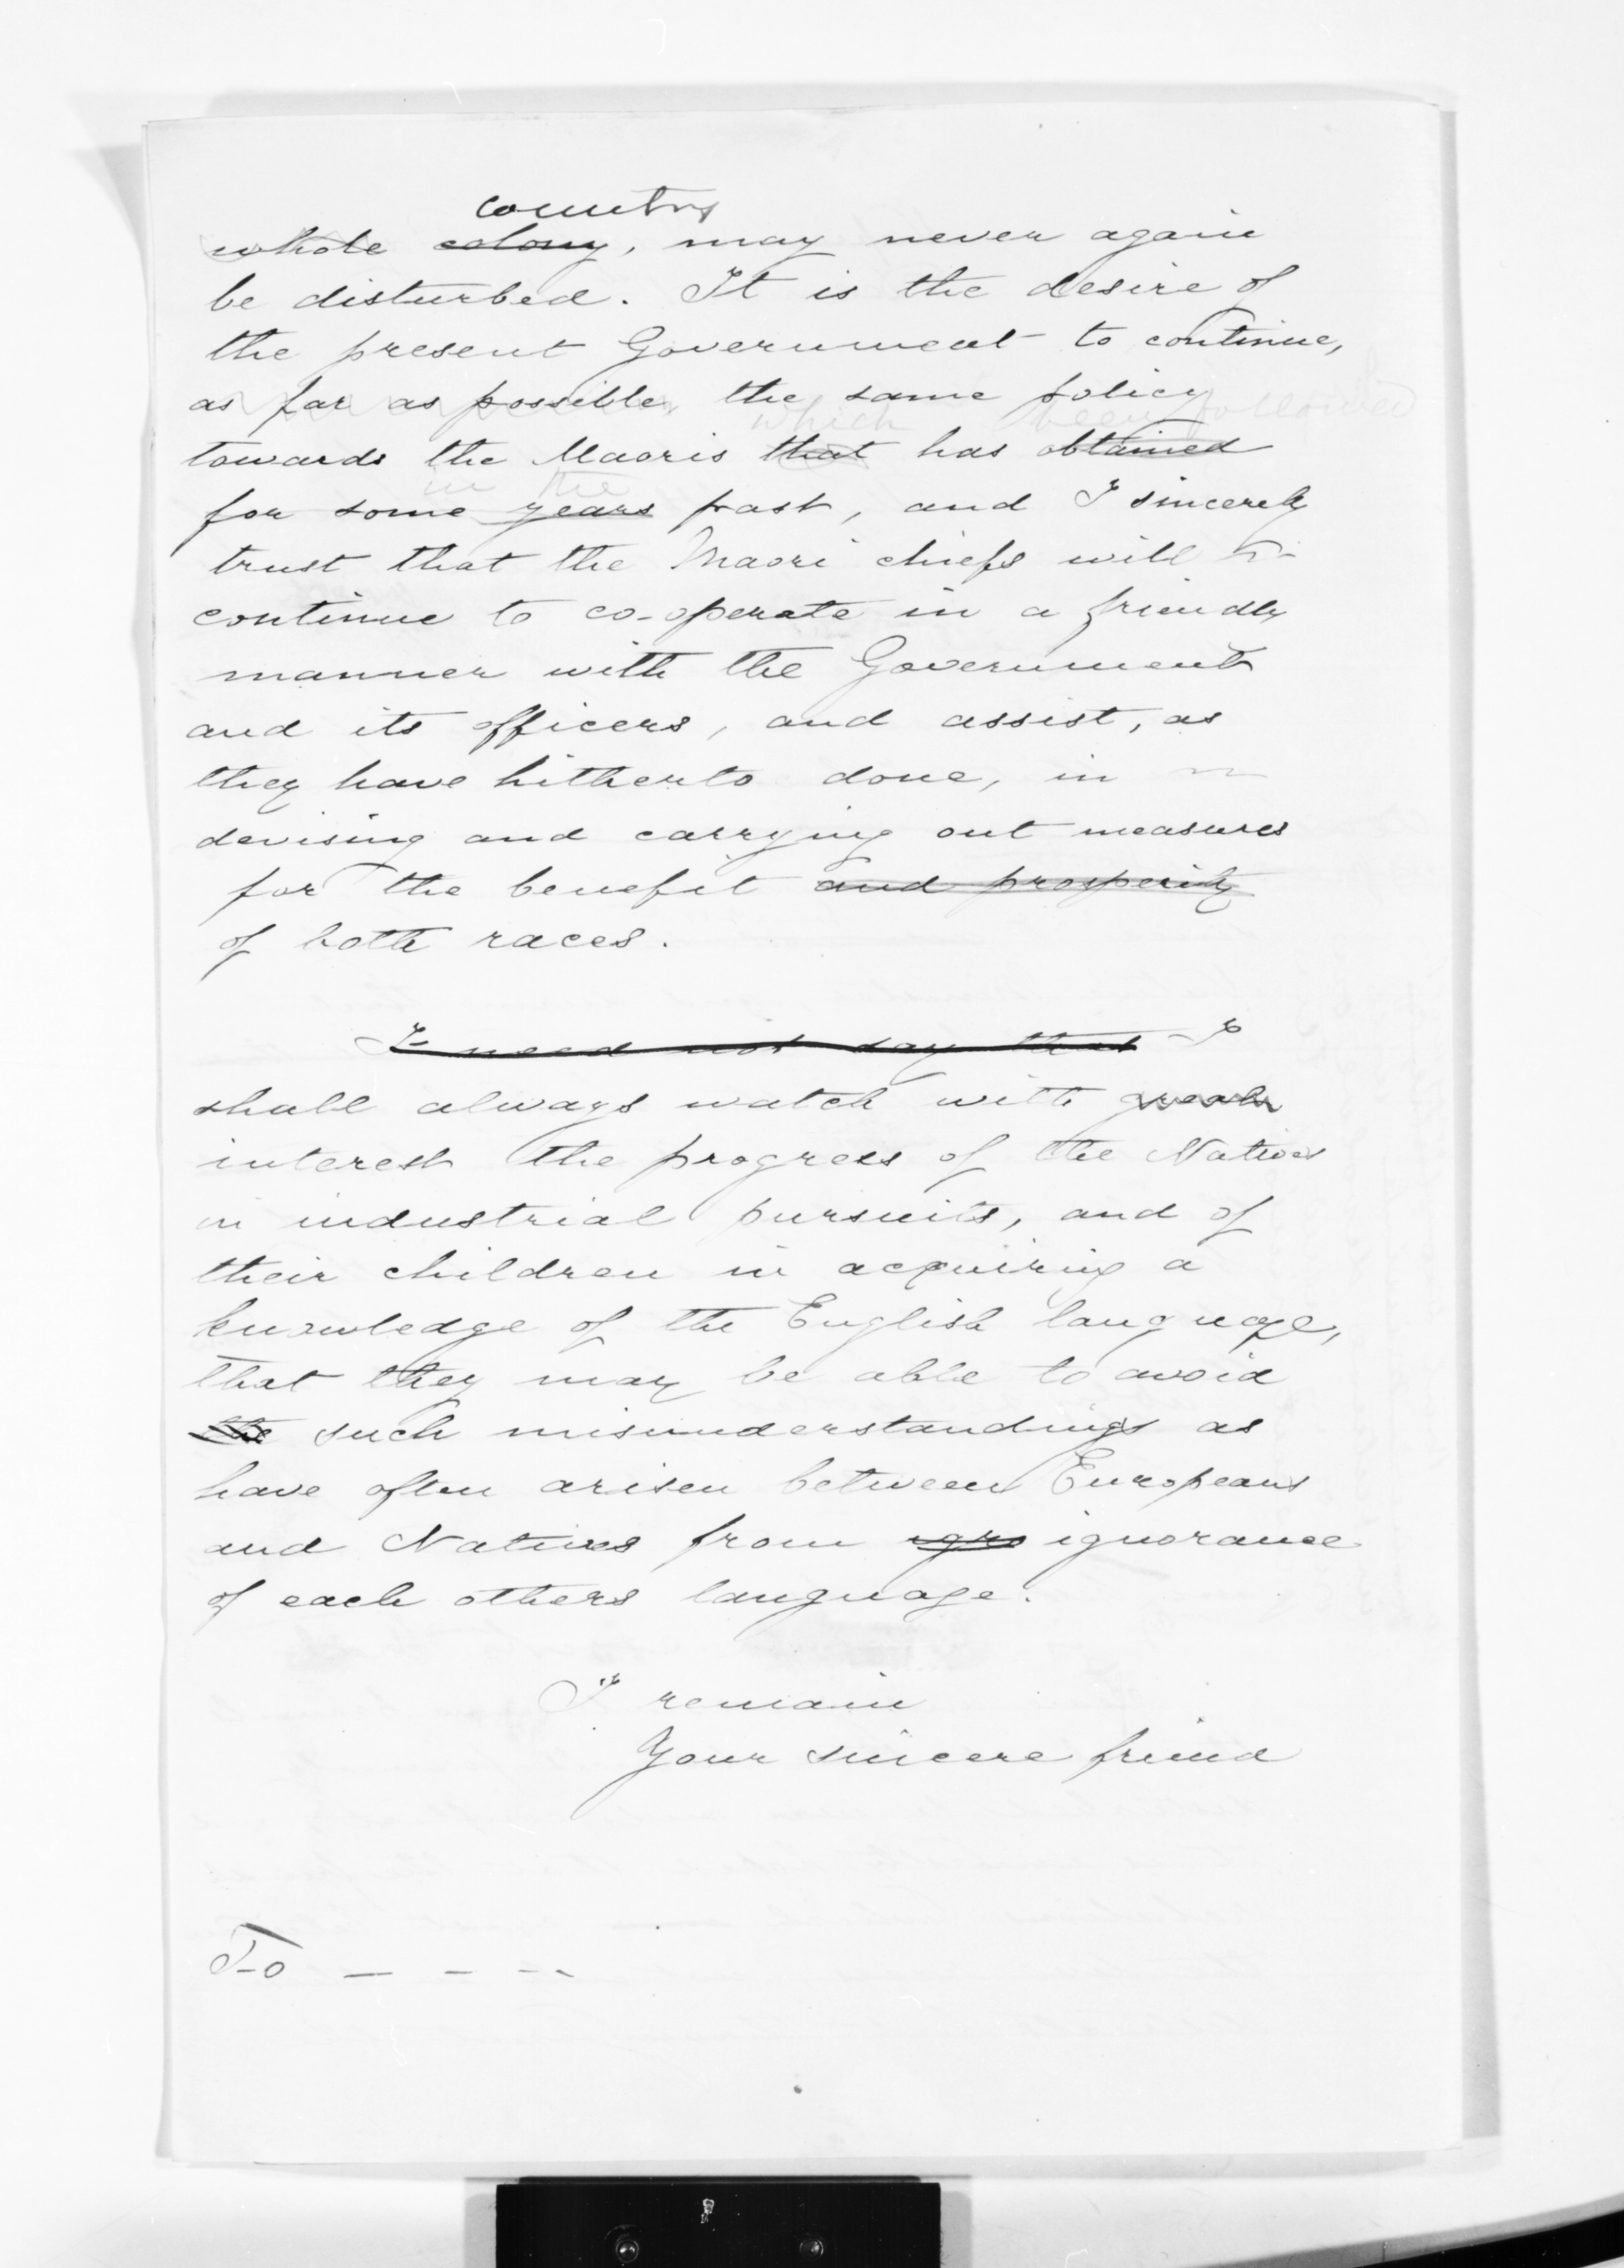 country
whole colony, may never again
be disturbed. It is the desire of
the present Government to continue,
as far as possible, the same policy
which been followed
towards the Maoris that has obtained
in the
for some years past, and I sincerely
trust that the Maori chiefs will
continue to co-operate in a friendly
manner with the Government
and its officers, and assist, as
they have hitherto done, in
devising and carrying out measures
for the benefit and prosperity
of both races.
I need not say that I
shall always watch with great
interest the progress of the Natives
in industrial pursuits, and of
their children in acquiring a
knowledge of the English language,
that they may be able to avoid
the such misunderstandings as
have often arisen between Europeans
and Natives from igno ignorance
of each others language.
I remain
Your sincere friend
To — - --